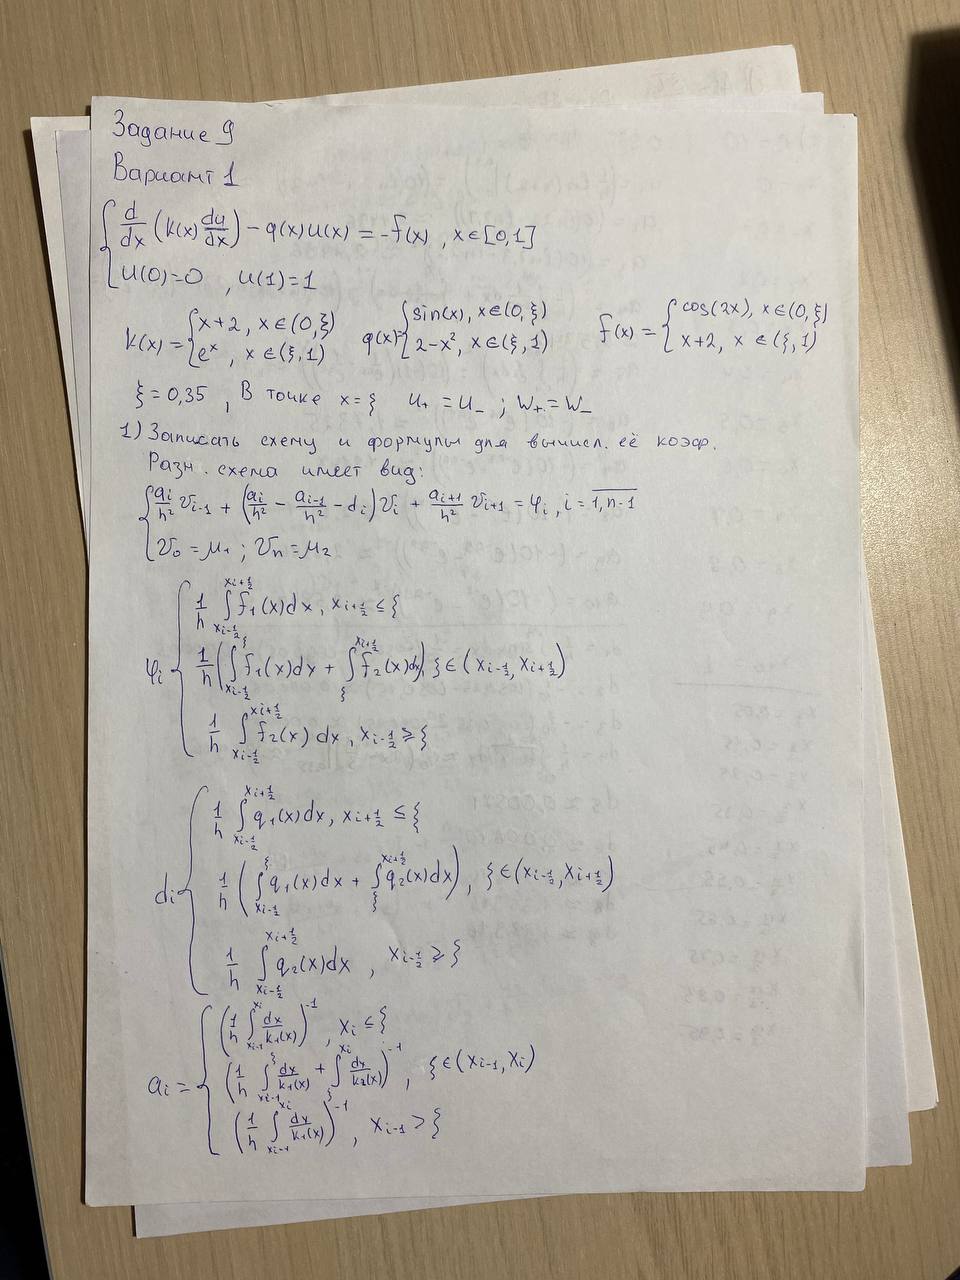 Задание 9
Вариант 1
{ d/dx (k(x) du/dx) - q(x)u(x) = -f(x), x∈[0,1]
u(0)=0, u(1)=1
k(x) = { x+2, x∈(0,ξ) ; e^x, x∈(ξ,1) q(x) = { sin(x), x∈(0,ξ) ; 2-x², x∈(ξ,1) f(x) = { cos(2x), x∈(0,ξ) ; x+2, x∈(ξ,1)
ξ = 0,35, В точке x=ξ u₊ = u₋ ; W₊ = W₋
1) Записать схему и формулы для вычисл. её коэф.
Разн. схема имеет вид:
{ aᵢ/h² vᵢ₋₁ + (aᵢ/h² - aᵢ₋₁/h² - dᵢ) vᵢ + aᵢ₊₁/h² vᵢ₊₁ = φᵢ, i = 1,n-1
v₀ = μ₁ ; vₙ = μ₂
φᵢ { 1/h ∫_{x_{i-1/2}}^{x_{i+1/2}} f₁(x)dx, x_{i+1/2} ≤ ξ
1/h ( ∫_{x_{i-1/2}}^{ξ} f₁(x)dx + ∫_{ξ}^{x_{i+1/2}} f₂(x)dx ), ξ∈(x_{i-1/2}, x_{i+1/2})
1/h ∫_{x_{i-1/2}}^{x_{i+1/2}} f₂(x)dx, x_{i-1/2} ≥ ξ
dᵢ { 1/h ∫_{x_{i-1/2}}^{x_{i+1/2}} q₁(x)dx, x_{i+1/2} ≤ ξ
1/h ( ∫_{x_{i-1/2}}^{ξ} q₁(x)dx + ∫_{ξ}^{x_{i+1/2}} q₂(x)dx ), ξ∈(x_{i-1/2}, x_{i+1/2})
1/h ∫_{x_{i-1/2}}^{x_{i+1/2}} q₂(x)dx, x_{i-1/2} ≥ ξ
aᵢ = { (1/h ∫_{x_{i-1}}^{x_i} dx/k₁(x))⁻¹, xᵢ ≤ ξ
(1/h ∫_{x_{i-1}}^{ξ} dx/k₁(x) + ∫_{ξ}^{x_i} dx/k₂(x))⁻¹, ξ∈(xᵢ₋₁, xᵢ)
(1/h ∫_{x_{i-1}}^{x_i} dx/k₁(x))⁻¹, xᵢ₋₁ > ξ